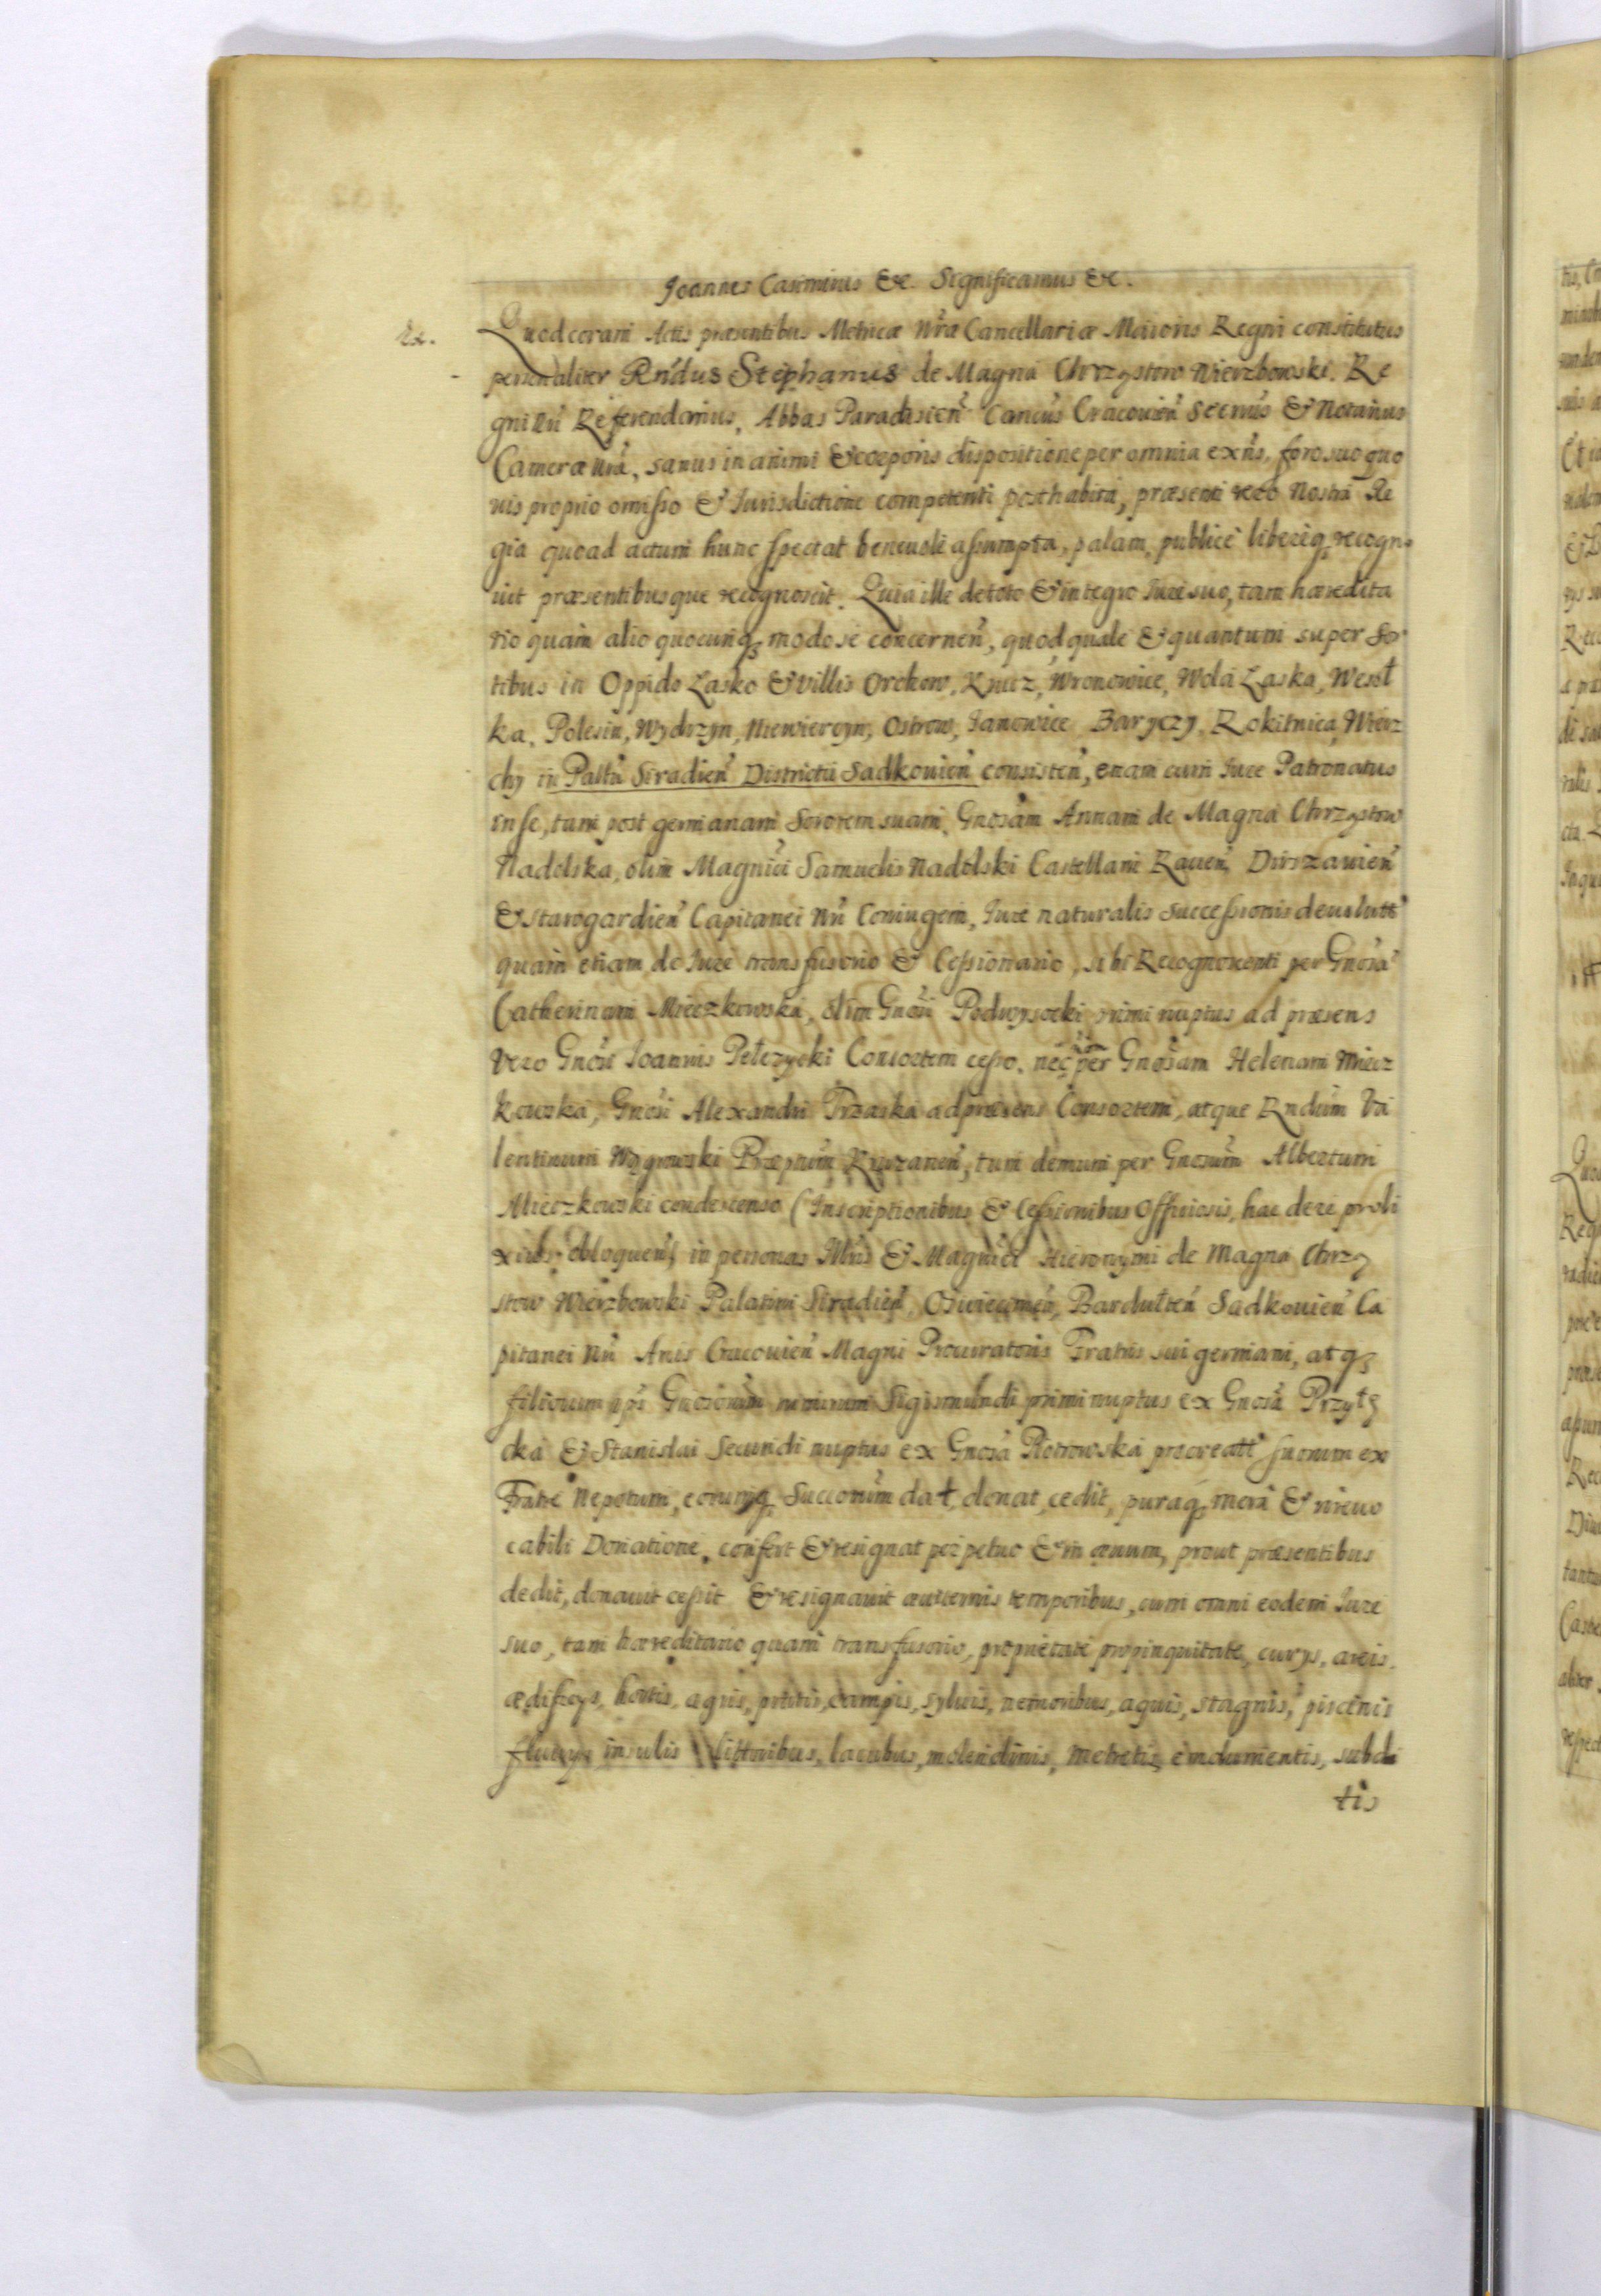 Joannes Casimirus &c. Significamus &c.
Rx. Quod coram Actis præsentibus Metricæ Nr̃æ Cancellariæ Maioris Regni constitutus
personaliter Rn̄dus Stephanus de Magna Chrząstow Wierzbowski. Re
gni Nr̃i Referendarius, Abbas Paradisien̄ Cancūs Cracovien̄ Secrius & Notarius
Cameræ Nr̃æ, sanus in animi & corporis dispositione per omnia exn̄s, foro suo quo
vis proprio omisso & Jurisdictione competenti posthabita, præsenti vero Nostra Re
gia quoad actum hunc spectat benevolè assumpta, palam, publicè liberèq, recogno
uit præsentibusque recognoscit. Quia ille de toto & integro Jure suo, tam hæredita
rio quàm alio quocunq, modo se concernen̄, quod quale & quantum super Sor
tibus in Oppido Łasko & villis Orchow, Krucz, Wronowice, Wola Łaska, Wesoł
ka, Polesin, Wydrzyn, Niewierzyn, Ostrow, Janowice Baryczy, Rokitnica, Wierz
chy in Paltū Siradien̄ Districtū Sadkovien̄ consisten̄, etiam cum Jure Patronatus
in se, tum post germanam Sororem suam, Gnosam Annam de Magna Chrząstow
Nadolska, olim Magnīci Samuelis Nadolski Castellani Raven̄, Dirszavien̄
& Starogardien̄ Capitanei Nr̃i Coniugem, Jure naturalis successionis devolutt̄
quàm etiam de Jure transfusorio & Cessionario, sibi Recognoscenti per Gnosā
Catherinam Mieczkowska, olim Gnosi Podwysocki primi nuptus ad præsens
vero Gnosi Joannis Pełczycki Consortem cesso, nec per Gnosam Helenam Miecz
kowska, Gnosi Alexandri Trzaska ad præsens Consortem, atque Rndūm Va
lentinum Præptūm tum demum per Gnosūm Albertum
Mieczkowski condescenso (Inscriptionibus & Cessionibus Officiosis, hac de re proli
xius obloquen̄) in personas Illr̄is & Magnīci Hieronymi de Magna Chrzą
stow Wierzbowski Palatini Siradien̄, Sadkovien̄ Ca
pitanei Nr̃i Arcis Cracovien̄ Magni Procuratoris Fratris sui germani, atq,
filiorum ip̄s Gnosorūm nimirum Sigismundi primi nuptus ex Gnosa Przyłę
cka & Stanislai Secundi nuptus ex Gnosa Piotrowska procreatt̄ suorum ex
Fratre Nepotum, eorumq, Succorūm dat, donat, cedit, puraq, mera & irreuo
cabili Donatione, confert & resignat perpetuo & in æuum, prout præsentibus
dedit, donauit cessit & resignauit æuiternis temporibus, cum omni eodem Jure
suo, tam hæreditario quam transfusorio, proprietate propinquitate, curys, areis,
ædificys, hortis, agris, pratis, campis, syluis, nemoribus, aquis, stagnis, piscinis
fluuys, insulis littoribus, lacubus, molendinis, metretis, emolumentis, subdi
tis